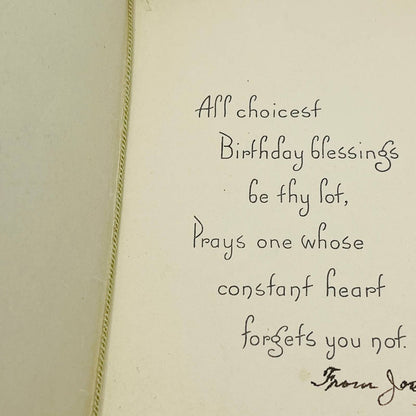 All choicest
Birthday blessings
be thy lot,
Prays one whose
constant heart
forgets you not.
From